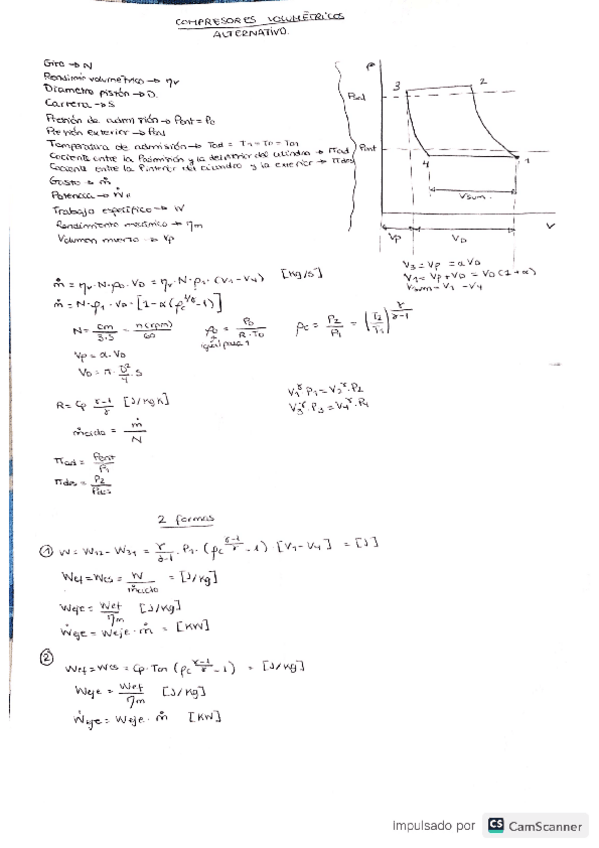 COMPRESORES VOLUMÉTRICOS
ALTERNATIVO.
Giro → N
Rendimie volumétrico → ηv
Diametro pistón → D.
Carrera → S
Presión de admisión → Pont = P0
Presión exterior →
Temperatura de admisión → Tad = T1 = T0 = T01
Cociente entre la Padmisión y la del interior del cilindro → πad
Cociente entre la Pinterior del cilindro y la exterior → πdes
Gasto → ṁ
Potencia →
Trabajo específico → W
Rendimiento mecánico → ηm
Volumen muerto → Vp
P
3 2
Pont
4 1
Vsum.
Vp VD V
V3 = Vp = αVD
V1 = Vp + VD = VD(1+α)
Vsum = V1 - V4
ṁ = ηv · N · ρ0 · VD = ηv · N · ρ1 · (V1 - V4) [kg/s]
ṁ = N · ρ1 · VD · [1 - α(ρc^1/γ - 1)]
N = cm/3.5 = n(rpm)/60 ρ0 = P0/R·T0 ρc = P2/P1 = (T2/T1)^γ/γ-1
Vp = α · VD
VD = π · D²/4 · S
V1^γ · P1 = V2^γ · P2
V3^γ · P3 = V4^γ · P4
R = Cp γ-1/γ [J/kgK]
ṁciclo = ṁ/N
πad = Pont/P1
πdes = P2/
2 formas
① W = W12 - W34 = γ/γ-1 · P1 · (ρc^γ-1/γ - 1) [V1 - V4] = [J]
Wef = Wcs = W/mciclo = [J/kg]
Weje = Wef/ηm [J/kg]
Ẇeje = Weje · ṁ = [KW]
②
Wef = Wcs = Cp · T01 (ρc^γ-1/γ - 1) = [J/kg]
Weje = Wef/ηm [J/kg]
Ẇeje = Weje · ṁ [KW]
Impulsado por CS CamScanner